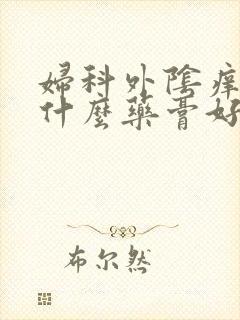 婦科外陰痒
什麼藥膏好
布尔然